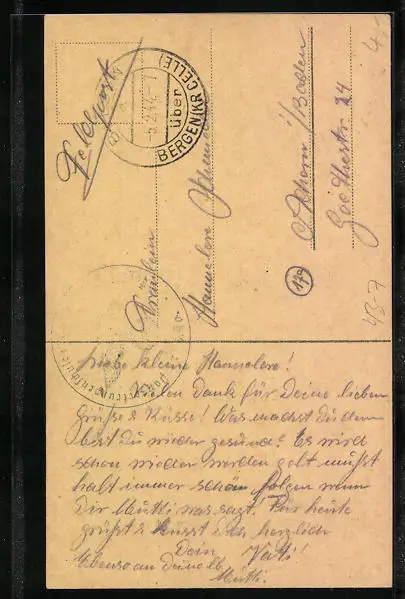 Feldpost
-6.2.44.-7
über
BERGEN (KR. CELLE)
Fräulein
Hannelore
Achern/Baden
Goethestr. 24
17a
Liebe kleine Hannelore!
Vielen Dank für Deine lieben
Grüße & Küsse! Was machst Du denn
bist Du wieder gesund? Es wird
schon wieder werden gelt mußt
halt immer schön folgen wenn
Dir Mutti was sagt. Für heute
grüßt & küsst Dich herzlich
Dein Vati!
Ebenso an Deine lb.
Mutti.